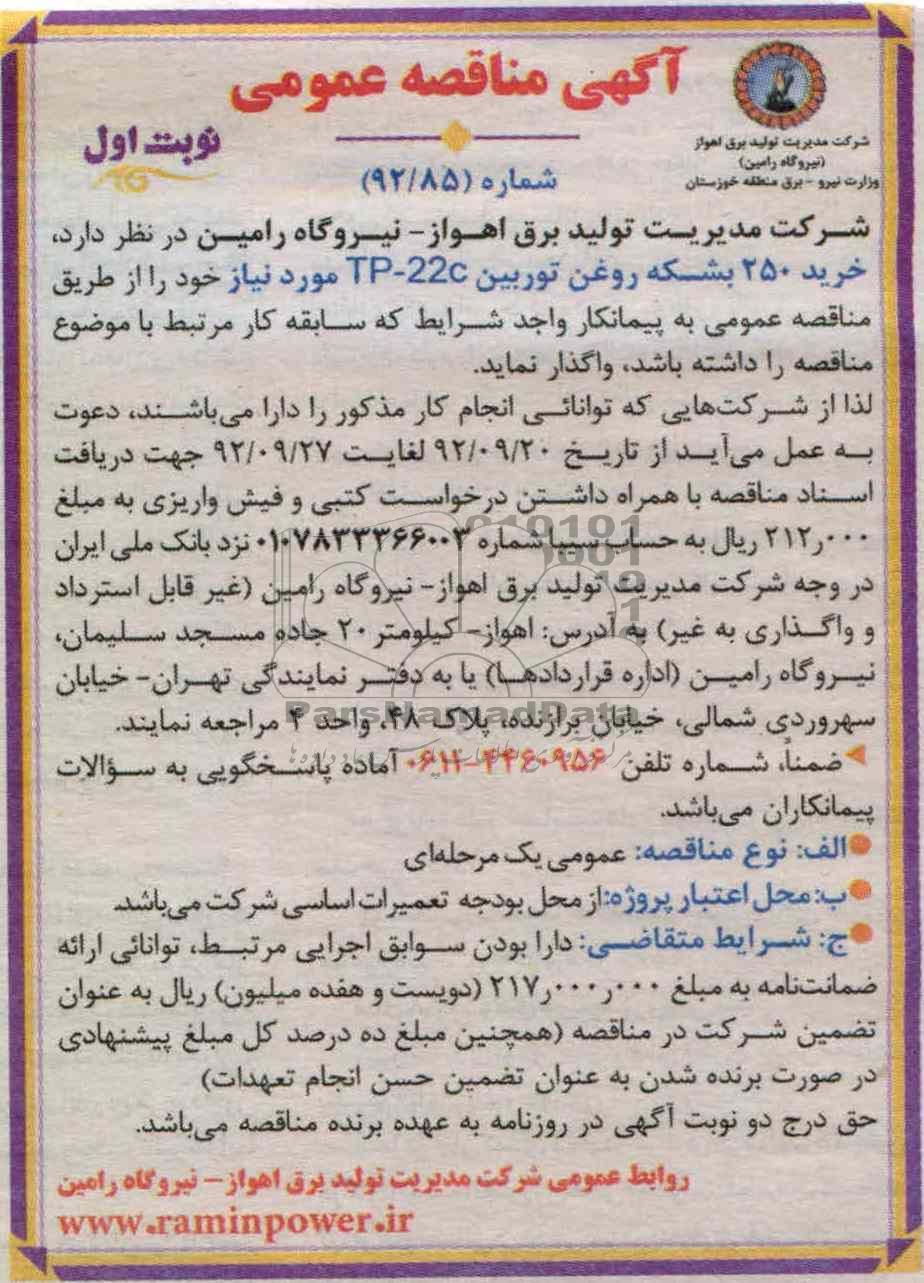 آگهی مناقصه عمومی
نوبت اول
شماره (۹۲/۸۵)
شرکت مدیریت تولید برق اهواز
(نیروگاه رامین)
وزارت نیرو - برق منطقه خوزستان
شرکت مدیریت تولید برق اهواز- نیروگاه رامین در نظر دارد،
خرید ۲۵۰ بشکه روغن توربین TP-22c مورد نیاز خود را از طریق
مناقصه عمومی به پیمانکار واجد شرایط که سابقه کار مرتبط با موضوع
مناقصه را داشته باشد، واگذار نماید.
لذا از شرکت‌هایی که توانائی انجام کار مذکور را دارا می‌باشند، دعوت
به عمل می‌آید از تاریخ ۹۲/۰۹/۲۰ لغایت ۹۲/۰۹/۲۷ جهت دریافت
اسناد مناقصه با همراه داشتن درخواست کتبی و فیش واریزی به مبلغ
۲۱۲٫۰۰۰ ریال به حساب سیبا شماره ۰۱۰۷۸۳۳۳۶۶۰۰۳ نزد بانک ملی ایران
در وجه شرکت مدیریت تولید برق اهواز- نیروگاه رامین (غیر قابل استرداد
و واگذاری به غیر) به آدرس: اهواز- کیلومتر ۲۰ جاده مسجد سلیمان،
نیروگاه رامین (اداره قراردادها) یا به دفتر نمایندگی تهران- خیابان
سهروردی شمالی، خیابان برازنده، پلاک ۴۸، واحد ۴ مراجعه نمایند.
ضمناً، شماره تلفن ۳۴۶۰۹۵۶-۰۶۱۲ آماده پاسخگویی به سؤالات
پیمانکاران می‌باشد.
الف: نوع مناقصه: عمومی یک مرحله‌ای
ب: محل اعتبار پروژه: از محل بودجه تعمیرات اساسی شرکت می‌باشد.
ج: شرایط متقاضی: دارا بودن سوابق اجرایی مرتبط، توانائی ارائه
ضمانت‌نامه به مبلغ ۲۱۷٫۰۰۰٫۰۰۰ (دویست و هفده میلیون) ریال به عنوان
تضمین شرکت در مناقصه (همچنین مبلغ ده درصد کل مبلغ پیشنهادی
در صورت برنده شدن به عنوان تضمین حسن انجام تعهدات)
حق درج دو نوبت آگهی در روزنامه به عهده برنده مناقصه می‌باشد.
روابط عمومی شرکت مدیریت تولید برق اهواز - نیروگاه رامین
www.raminpower.ir
ParsNamadData